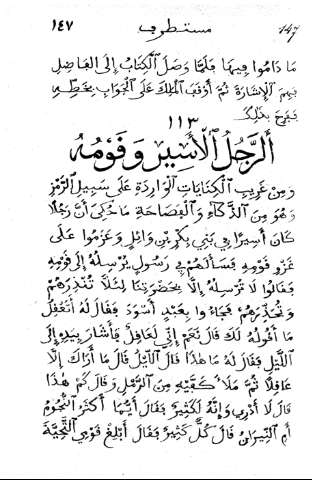 ١٤٧ مستطرف 147
مَا دَامُوا فِيهَا فَلَمَّا وَصَلَ ٱلْكِتَابُ إِلَى ٱلْفَاضِلِ
فَهِمَ ٱلْإِشَارَةَ ثُمَّ أَوْقَفَ ٱلْمَلِكَ عَلَى ٱلْجَوَابِ بِخَطِّهِ
فَفَرِحَ بِذٰلِكَ
١١٣
ٱلرَّجُلُ ٱلْأَسِيرُ وَقَوْمُهُ
وَمِنْ غَرِيبِ ٱلْكِنَايَاتِ ٱلْوَارِدَةِ عَلَى سَبِيلِ ٱلرَّمْزِ
وَهُوَ مِنَ ٱلذَّكَاءِ وَٱلْفَصَاحَةِ مَا حُكِيَ أَنَّ رَجُلًا
كَانَ أَسِيرًا فِي بَنِي بَكْرِ بْنِ وَائِلٍ وَعَزَمُوا عَلَى
غَزْوِ قَوْمِهِ فَسَأَلَهُمْ فِي رَسُولٍ يُرْسِلُهُ إِلَى قَوْمِهِ
فَقَالُوا لَا تُرْسِلْهُ إِلَّا بِحَضْرَتِنَا لِئَلَّا تُنْذِرَهُمْ
وَتُحَذِّرَهُمْ فَجَاءُوا بِعَبْدٍ أَسْوَدَ فَقَالَ لَهُ أَتَعْقِلُ
مَا أَقُولُهُ لَكَ قَالَ نَعَمْ إِنِّي لَعَاقِلٌ فَأَشَارَ بِيَدِهِ إِلَى
ٱللَّيْلِ فَقَالَ لَهُ مَا هٰذَا قَالَ ٱللَّيْلُ قَالَ مَا أَرَاكَ إِلَّا
عَاقِلًا ثُمَّ مَلَأَ كَفَّيْهِ مِنَ ٱلرَّمْلِ وَقَالَ كَمْ هٰذَا
قَالَ لَا أَدْرِي وَإِنَّهُ لَكَثِيرٌ فَقَالَ أَيُّهَا أَكْثَرُ ٱلنُّجُومُ
أَمِ ٱلنِّيرَانُ قَالَ كُلٌّ كَثِيرٌ فَقَالَ أَبْلِغْ قَوْمِي ٱلتَّحِيَّةَ